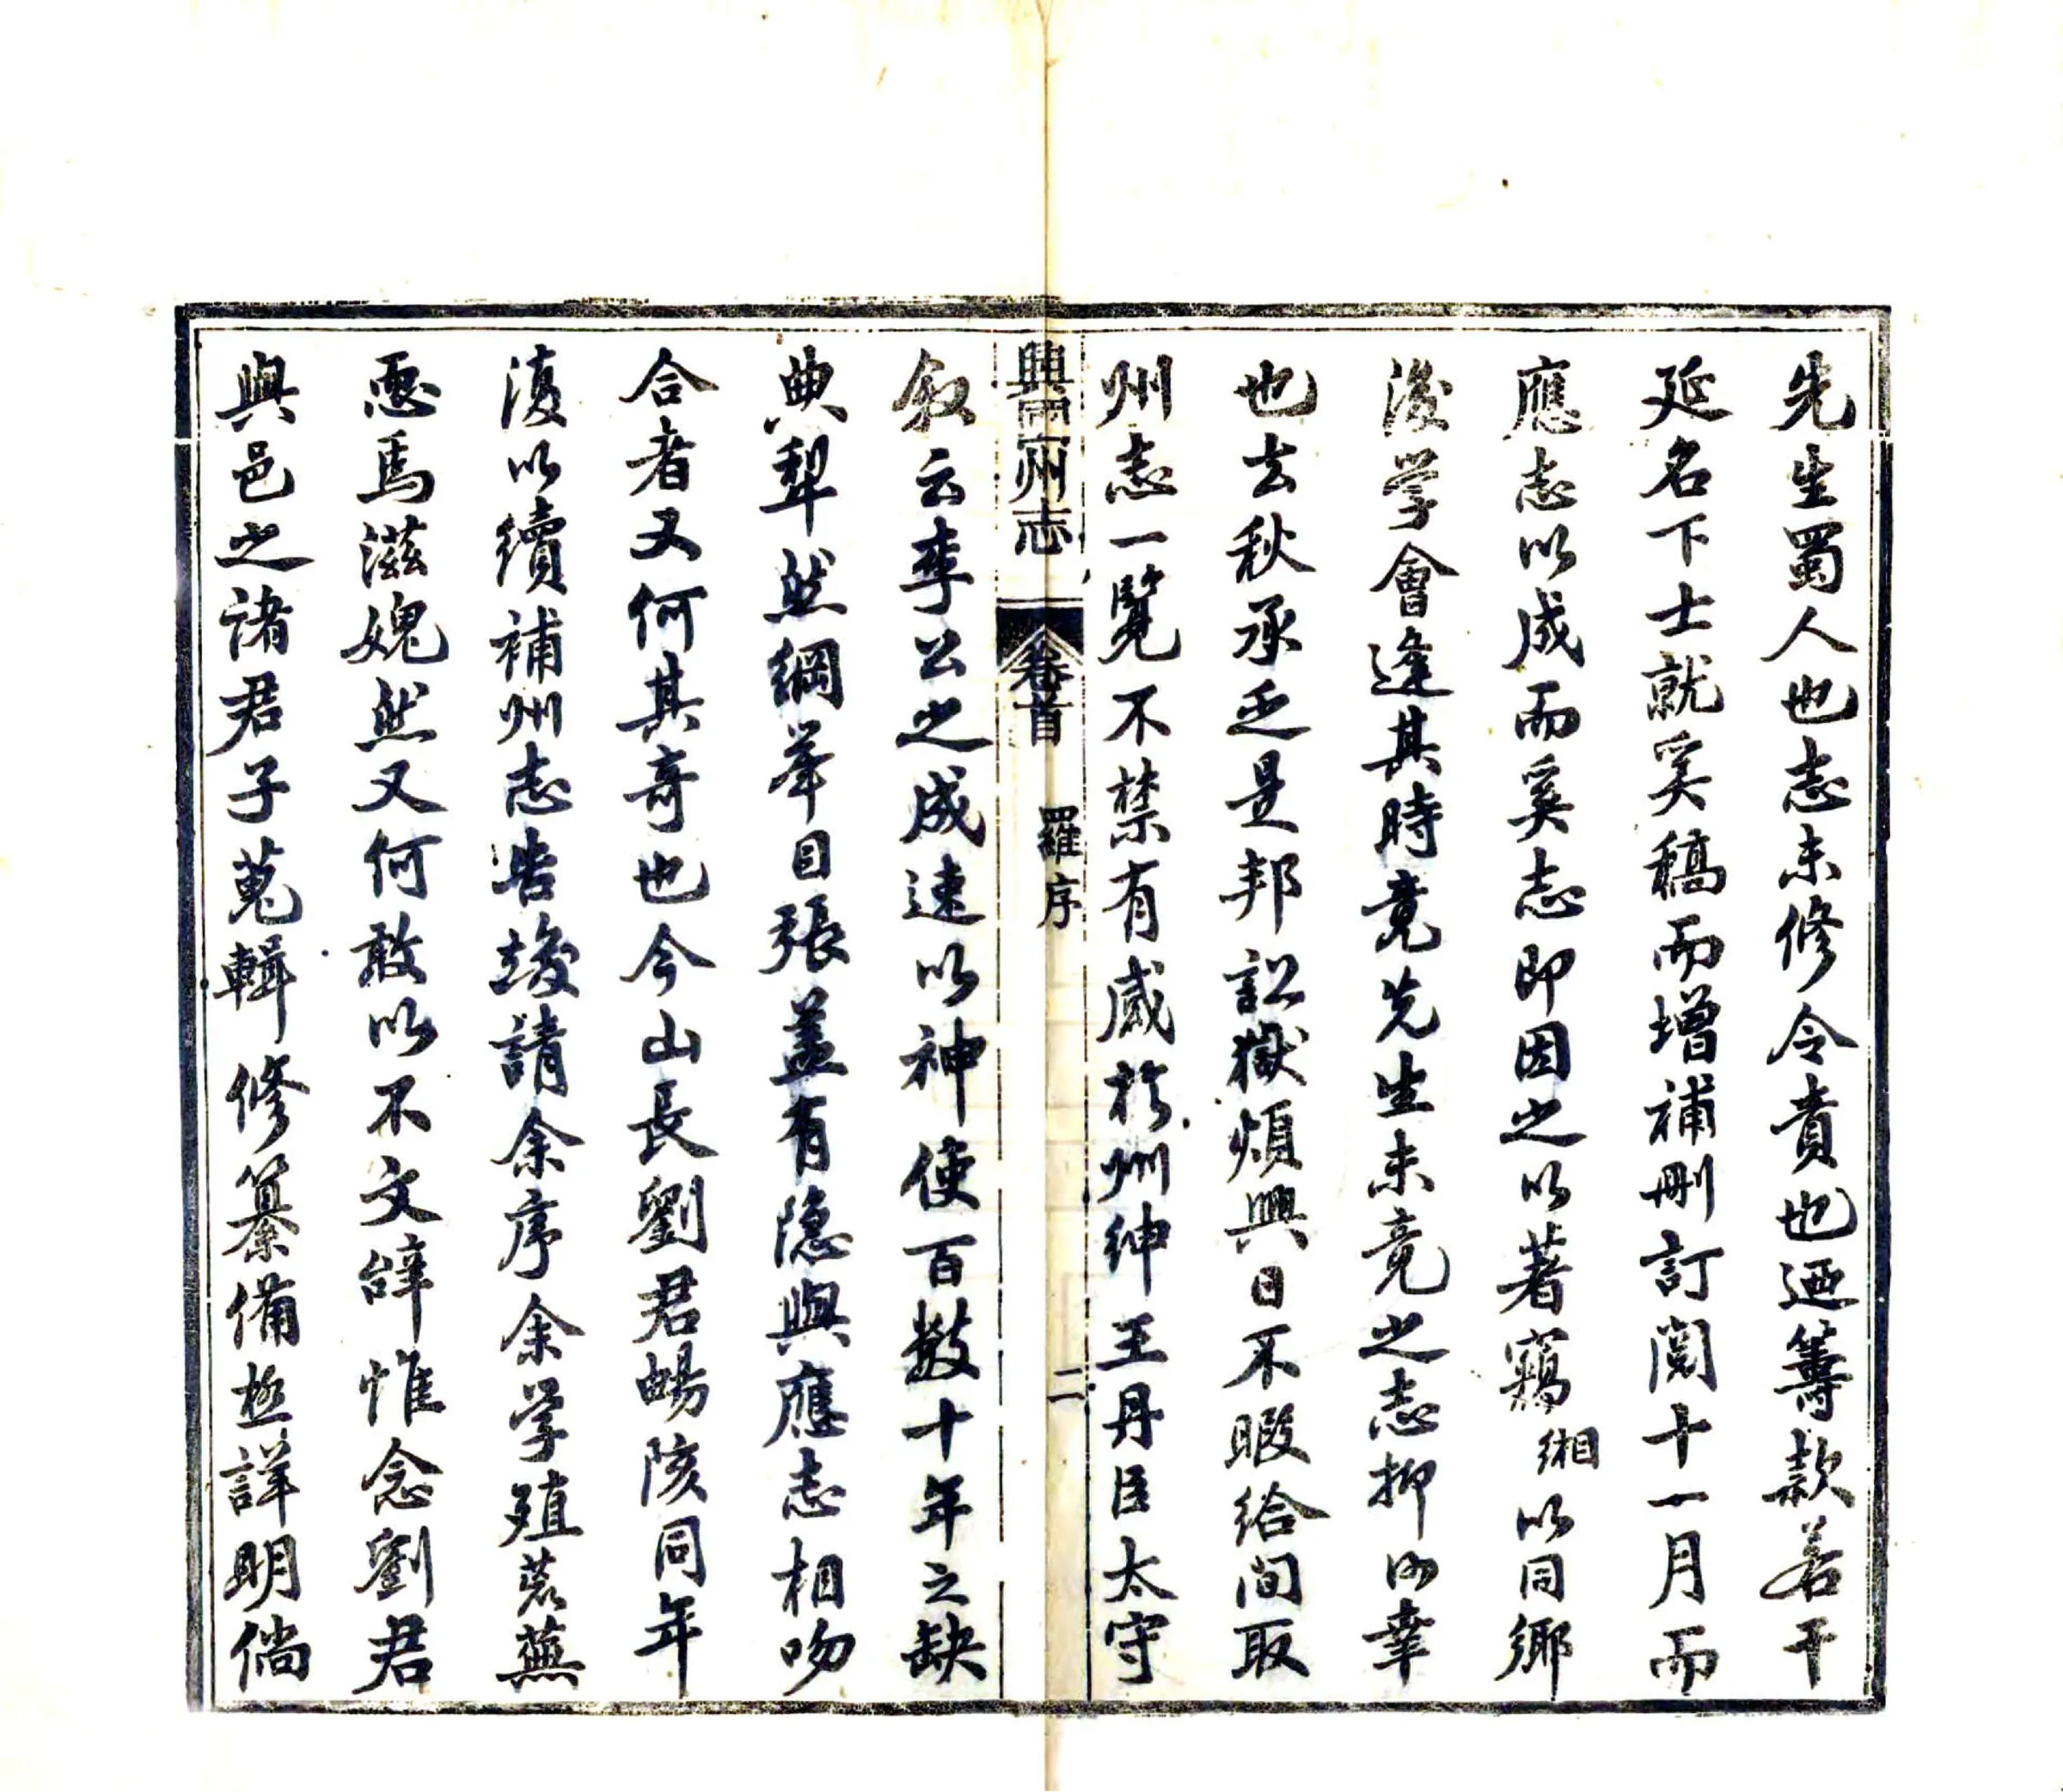 先生蜀人也志未修令責也迺籌款若干
延名下士就奚稿而增補刪訂閱十一月而
應志以成而奚志即因之以著竊緗以同鄉
後学會逢其時竟先生未竟之志抑何幸
也去秋承乏是邦訟獄煩興日不暇給间取
州志一覽不禁有感於州紳王丹臣太守
興國州志 卷首 羅序 二
叙云李公之成速以神使百數十年之缺
典犁然綱举目張盖有隐與應志相吻
合者又何其奇也今山長劉君暘陔同年
復以續補州志告竣請余序余学殖荒蕪
恧焉滋媿然又何敢以不文辭惟念劉君
與邑之諸君子蒐輯修纂備極詳明倘